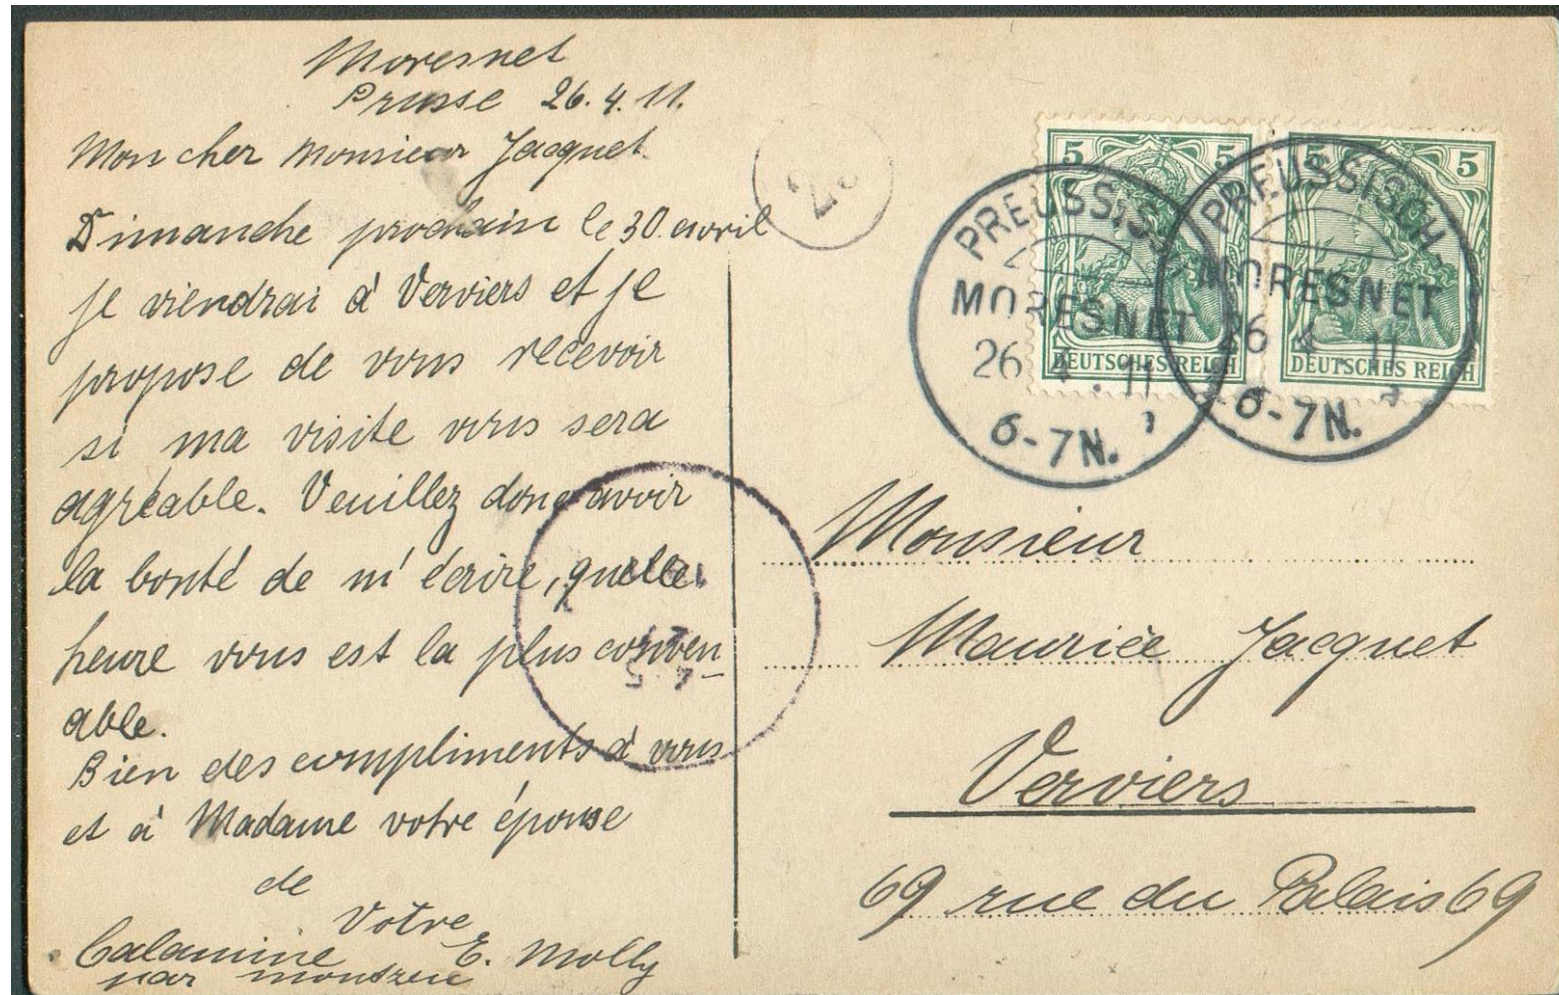 Moresnet
Prusse 26.4.11.
Mon cher Monsieur Jacquet
Dimanche prochain le 30. avril
je viendrai à Verviers et je
propose de vous recevoir
si ma visite vous sera
agréable. Veuillez donc avoir
la bonté de m'écrire, quelle
heure vous est la plus conven
able.
Bien des compliments à vous
et à Madame votre épouse
de
Votre
Calamine E. Molly
par
5 5
5 5
PREUSSISCH-
MORESNET
26 4. 11
6-7N.
PREUSSISCH-
MORESNET
26 4. 11
6-7N.
DEUTSCHES REICH
DEUTSCHES REICH
Monsieur
Maurice Jacquet
Verviers
69 rue du Palais 69